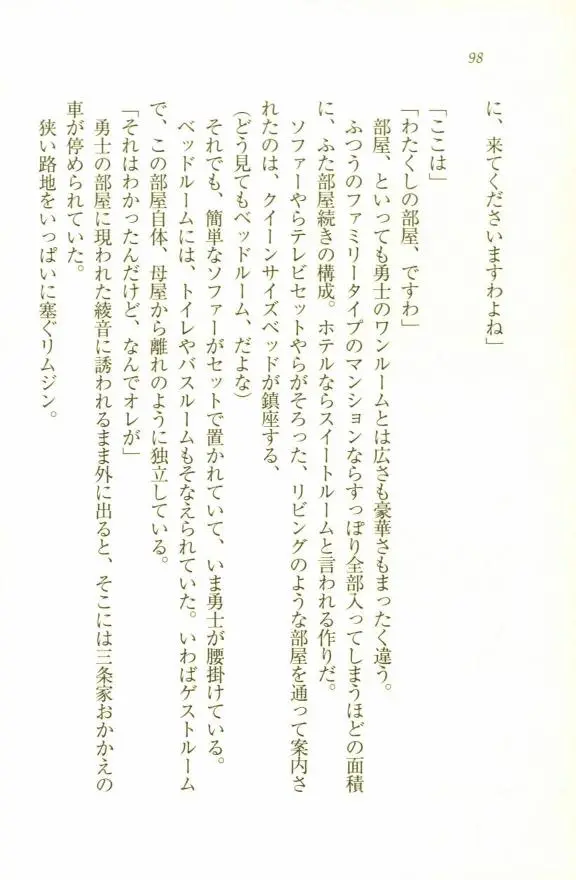 98
に、来てくださいますわよね」
「ここは」
「わたくしの部屋、ですわ」
部屋、といっても勇士のワンルームとは広さも豪華さもまったく違う。
ふつうのファミリータイプのマンションならすっぽり全部入ってしまうほどの面積
に、ふた部屋続きの構成。ホテルならスイートルームと言われる作りだ。
ソファーやらテレビセットやらがそろった、リビングのような部屋を通って案内さ
れたのは、クイーンサイズベッドが鎮座する、
(どう見てもベッドルーム、だよな)
それでも、簡単なソファーがセットで置かれていて、いま勇士が腰掛けている。
ベッドルームには、トイレやバスルームもそなえられていた。いわばゲストルーム
で、この部屋自体、母屋から離れのように独立している。
「それはわかったんだけど、なんでオレが」
勇士の部屋に現われた綾音に誘われるまま外に出ると、そこには三条家おかかえの
車が停められていた。
狭い路地をいっぱいに塞ぐリムジン。